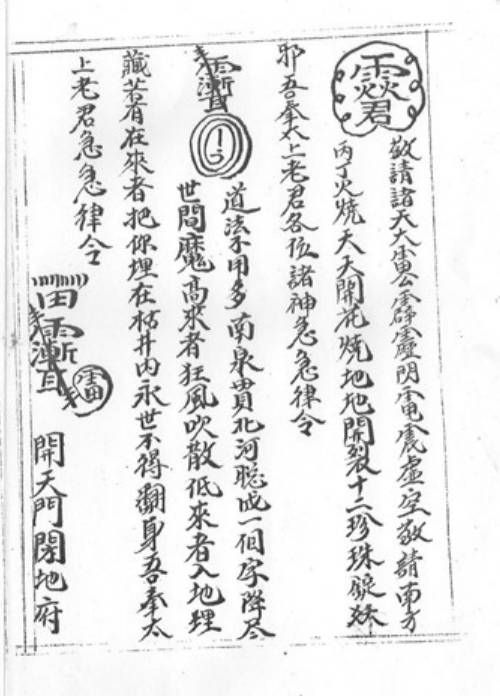 敬請諸天大雷公霹靂閃電震虛空敬請南方
丙丁火燒天天開花燒地地開裂十二珍珠
邪吾奉太上老君各位諸神急急律令
道法不用多南泉貫北河聡成一個字降尽
世間魔高來者狂風吹散低來者入地埋
藏若有在來者把你埋在枯井內永世不得翻身吾奉太
上老君急急律令
開天門閉地府